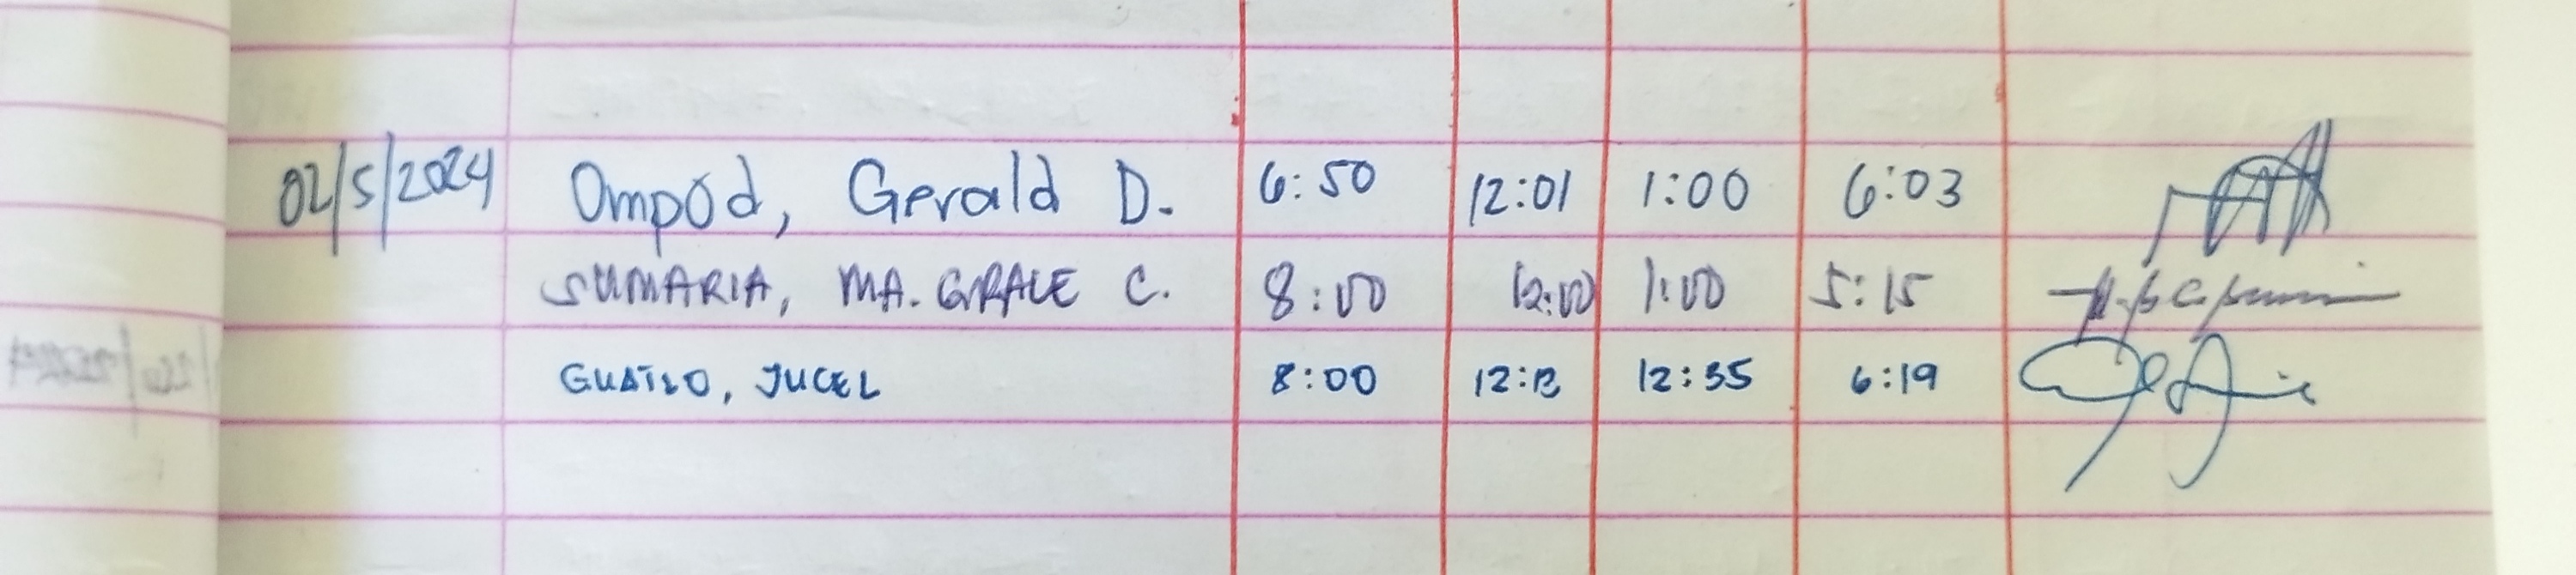 02/5/2024 Ompod, Gerald D. 6:50 12:01 1:00 6:03
SUMARIA, MA. GRACE C. 8:00 12:00 1:00 5:15
JUCEL 8:00 12:13 12:35 6:19